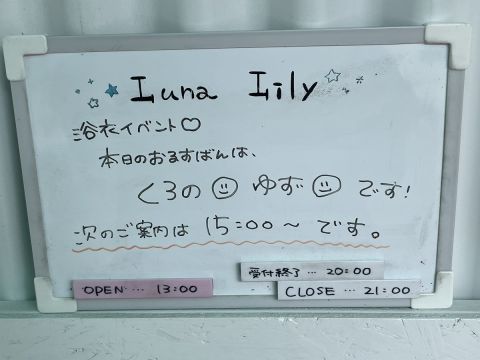 Luna Lily
浴衣イベント♡
本日のおるすばんは、
くろの☺ ゆず☺ です!
次のご案内は 15:00〜 です。
受付終了… 20:00
OPEN … 13:00
CLOSE … 21:00